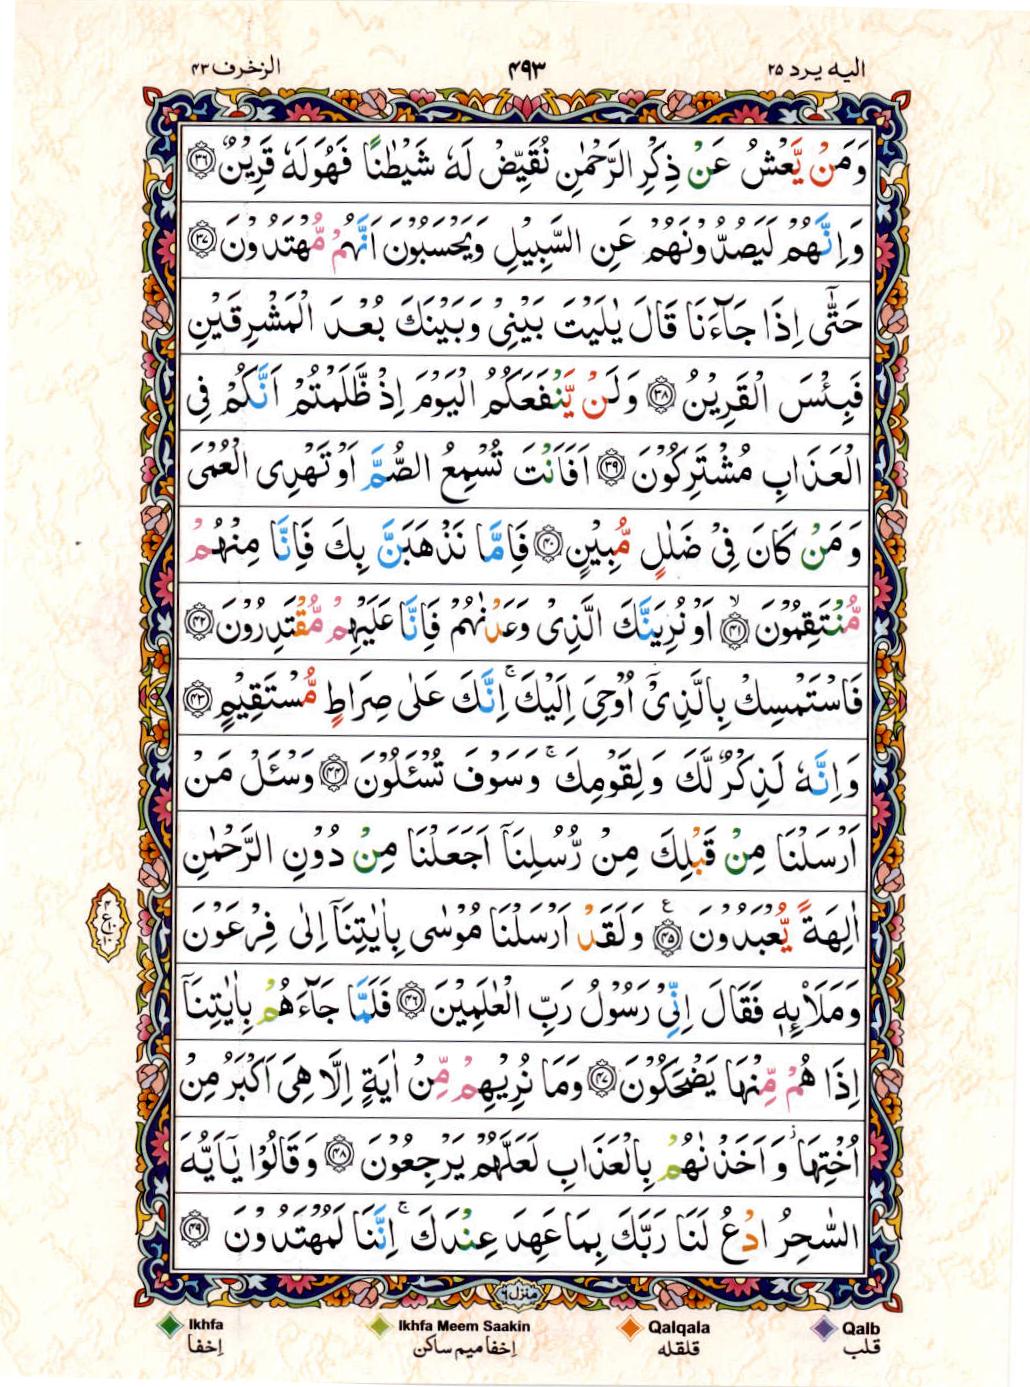 الزخرف ٤٣ ٤٩٣ اليه يرد ٢٥
وَمَنْ يَّعْشُ عَنْ ذِكْرِ الرَّحْمٰنِ نُقَيِّضْ لَهٗ شَيْطٰنًا فَهُوَ لَهٗ قَرِيْنٌ ﴿٣٦﴾
وَاِنَّهُمْ لَيَصُدُّوْنَهُمْ عَنِ السَّبِيْلِ وَيَحْسَبُوْنَ اَنَّهُمْ مُّهْتَدُوْنَ ﴿٣٧﴾
حَتّٰٓى اِذَا جَآءَنَا قَالَ يٰلَيْتَ بَيْنِيْ وَبَيْنَكَ بُعْدَ الْمَشْرِقَيْنِ
فَبِئْسَ الْقَرِيْنُ ﴿٣٨﴾ وَلَنْ يَّنْفَعَكُمُ الْيَوْمَ اِذْ ظَّلَمْتُمْ اَنَّكُمْ فِى
الْعَذَابِ مُشْتَرِكُوْنَ ﴿٣٩﴾ اَفَاَنْتَ تُسْمِعُ الصُّمَّ اَوْ تَهْدِى الْعُمْىَ
وَمَنْ كَانَ فِيْ ضَلٰلٍ مُّبِيْنٍ ﴿٤٠﴾ فَاِمَّا نَذْهَبَنَّ بِكَ فَاِنَّا مِنْهُمْ
مُّنْتَقِمُوْنَ ۙ ﴿٤١﴾ اَوْ نُرِيَنَّكَ الَّذِيْ وَعَدْنٰهُمْ فَاِنَّا عَلَيْهِمْ مُّقْتَدِرُوْنَ ﴿٤٢﴾
فَاسْتَمْسِكْ بِالَّذِيْٓ اُوْحِيَ اِلَيْكَ ۚ اِنَّكَ عَلٰى صِرَاطٍ مُّسْتَقِيْمٍ ﴿٤٣﴾
وَاِنَّهٗ لَذِكْرٌ لَّكَ وَلِقَوْمِكَ ۚ وَسَوْفَ تُسْـَٔلُوْنَ ﴿٤٤﴾ وَسْـَٔلْ مَنْ
اَرْسَلْنَا مِنْ قَبْلِكَ مِنْ رُّسُلِنَآ اَجَعَلْنَا مِنْ دُوْنِ الرَّحْمٰنِ
اٰلِهَةً يُّعْبَدُوْنَ ﴿٤٥﴾ ع وَلَقَدْ اَرْسَلْنَا مُوْسٰى بِاٰيٰتِنَآ اِلٰى فِرْعَوْنَ
٤
ع ١٠
١٠
وَمَلَا۟ئِهٖ فَقَالَ اِنِّيْ رَسُوْلُ رَبِّ الْعٰلَمِيْنَ ﴿٤٦﴾ فَلَمَّا جَآءَهُمْ بِاٰيٰتِنَآ
اِذَا هُمْ مِّنْهَا يَضْحَكُوْنَ ﴿٤٧﴾ وَمَا نُرِيْهِمْ مِّنْ اٰيَةٍ اِلَّا هِيَ اَكْبَرُ مِنْ
اُخْتِهَا ۫ وَاَخَذْنٰهُمْ بِالْعَذَابِ لَعَلَّهُمْ يَرْجِعُوْنَ ﴿٤٨﴾ وَقَالُوْا يٰٓاَيُّهَ
السّٰحِرُ ادْعُ لَنَا رَبَّكَ بِمَا عَهِدَ عِنْدَكَ ۚ اِنَّنَا لَمُهْتَدُوْنَ ﴿٤٩﴾
منزل ٦
Ikhfa Ikhfa Meem Saakin Qalqala Qalb
إخفا إخفا ميم ساكن قلقله قلب